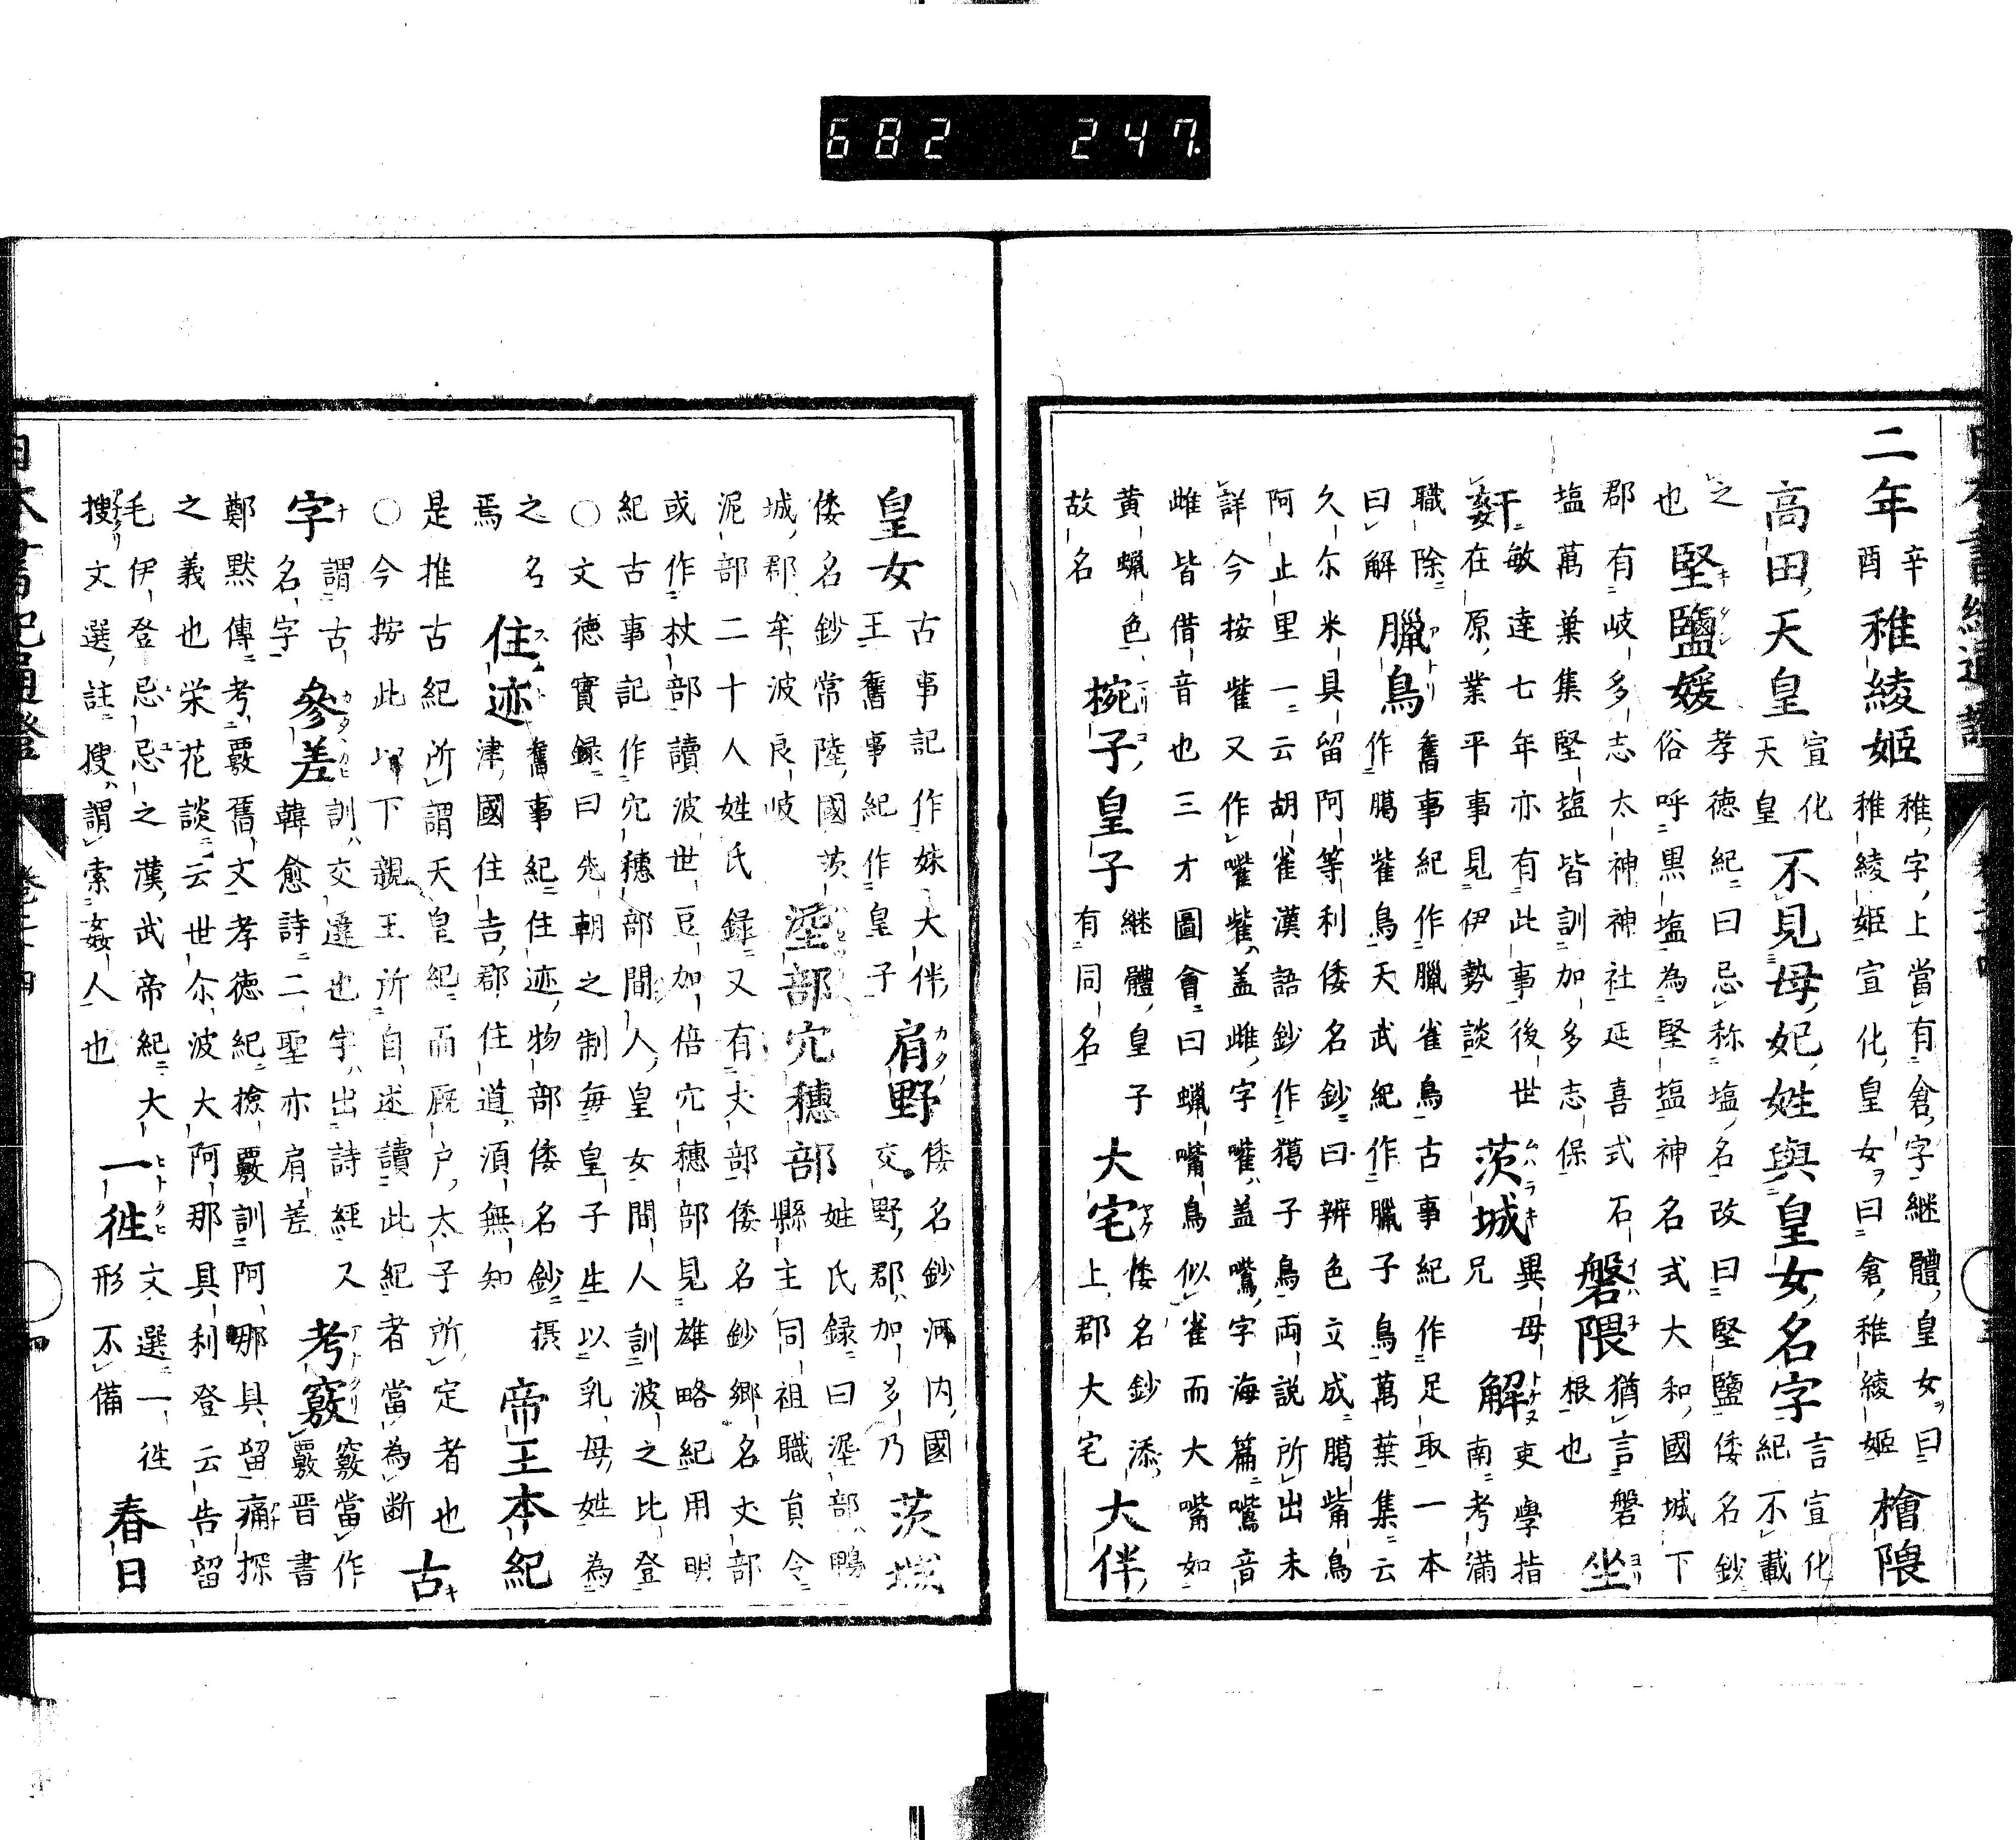 682 247
二年辛酉稚綾姬稚字上當有倉字継體皇女曰稚綾姬宣化皇女曰倉稚綾姬檜隈
高田天皇宣化天皇不見母妃姓與皇女名字言宣化紀不載
之也堅鹽媛孝徳紀曰忌称塩名改曰堅鹽倭名鈔俗呼黒塩為堅塩神名式大和國城下
郡有岐多志太神社延喜式石塩萬葉集堅塩皆訓加多志保磐隈猶言磐根也坐
奸敏達七年亦有此事後世在原業平事見伊勢談茨城異母兄解吏學指南考滿
職除曰解臘鳥舊事紀作臘雀鳥古事紀作足取一本作鵰雀鳥天武紀作臘子鳥萬葉集云
久尓米具留阿等利倭名鈔曰辨色立成鵰觜鳥阿止里一云胡雀漢語鈔作獦子鳥両説所出未
詳今按觜又作嘴觜盖雌字嘴盖鷲字海篇鷲音雌皆借音也三才圖會曰蠟嘴鳥似雀而大嘴如
黄蠟色故名椀子皇子継體皇子有同名大宅倭名鈔添上郡大宅大伴
皇女古事記作妹大伴王舊事紀作皇子肩野倭名鈔河内國交野郡加多乃茨城
倭名鈔常陸國茨城郡牟波良岐埿部穴穗部姓氏録曰埿部鴨縣主同祖職員令
泥部二十人姓氏録又有丈部倭名鈔郷名丈部或作杖部讀波世豆加倍穴穗部見雄略紀用明
紀古事記作穴穗部間人皇女間人訓波之比登○文徳實録曰先朝之制毎皇子生以乳母姓為
之名焉住迹舊事紀住迹物部倭名鈔摂津國住吉郡住道須無知帝王本紀
是推古紀所謂天皇紀而厩户太子所定者也○今按此以下親王所自述讀此紀者當為断古
字謂古名字參差訓交違也字出詩經又韓愈詩二聖亦肩差考竅竅當作覈晋書
鄭默傳考覈舊文孝徳紀撿覈訓阿那具留痛探之義也栄花談云世尓波大阿那具利登云告留
毛伊登忌忌之漢武帝紀大搜文選註搜謂索姦人也一徃文選一徃形不備春日